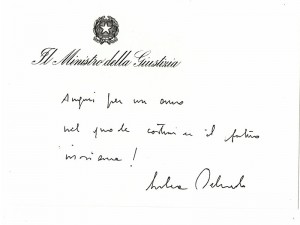 Il Ministro della Giustizia
Auguri per un anno
nel quale costruire il futuro
insieme!